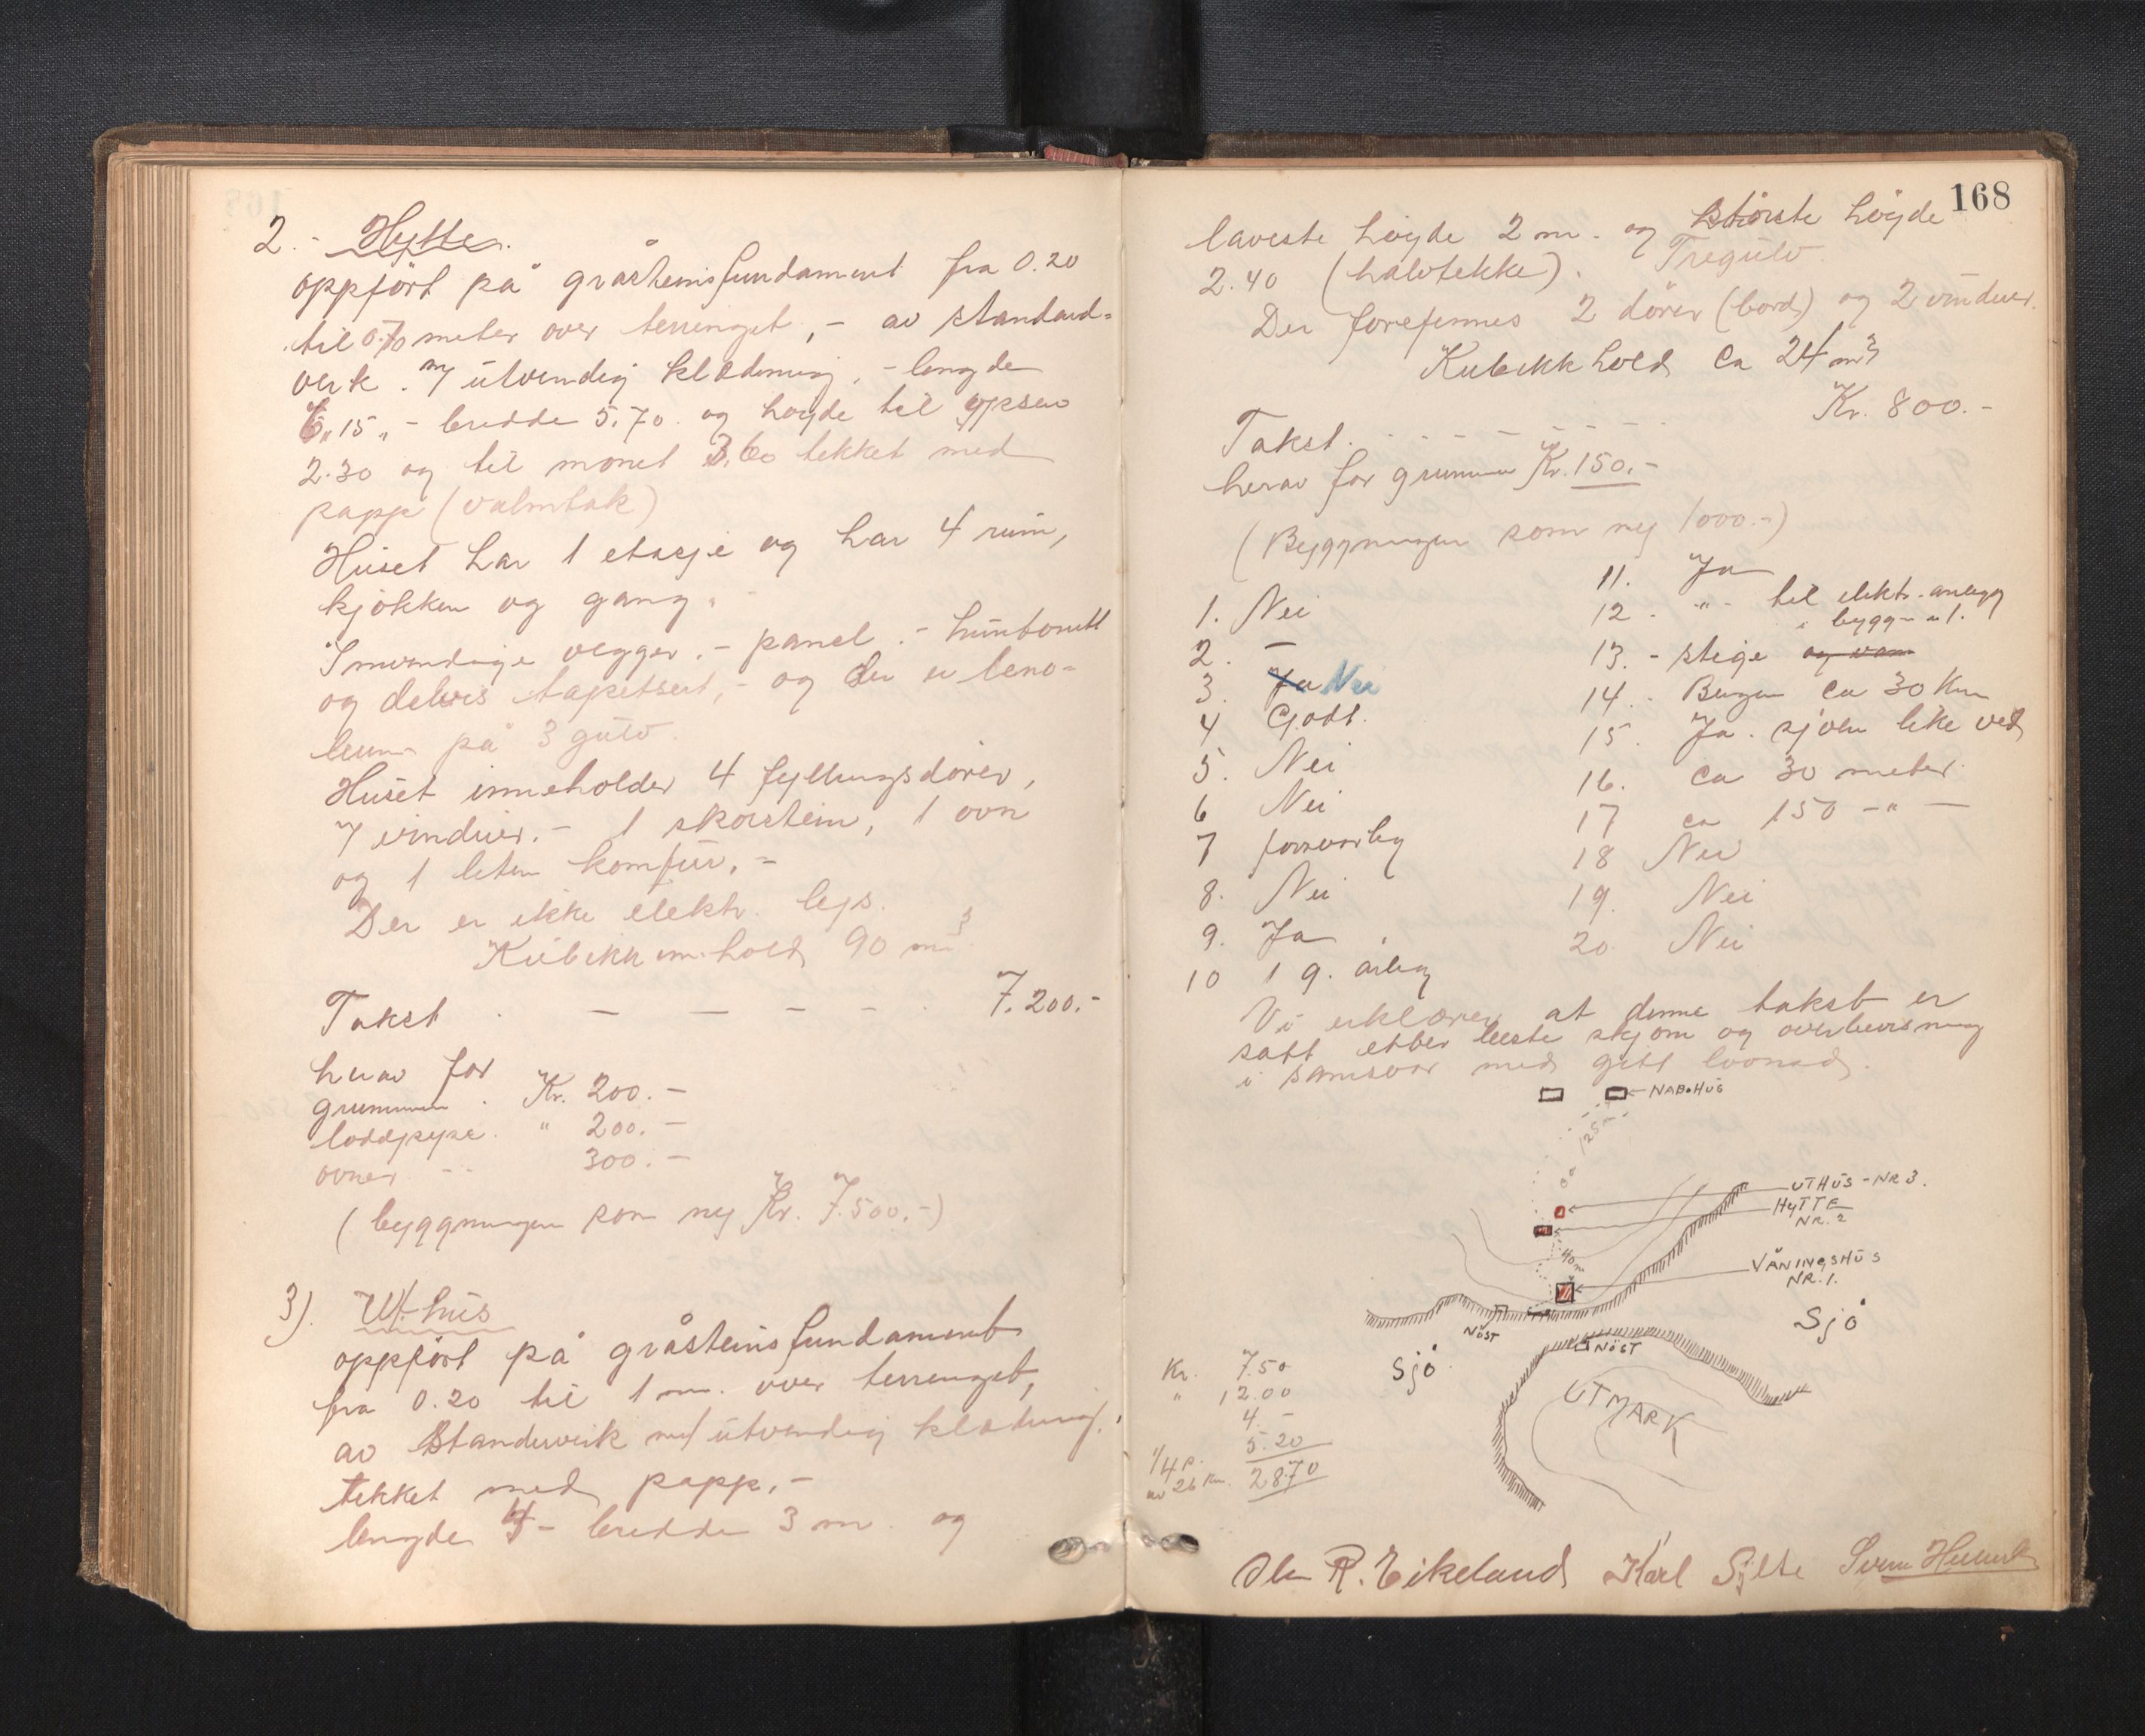 2.- Hytte.
oppfört på gråsteinsfundament fra 0.20
til 0.70 meter over terrenget, - av standard-
verk. m/ utvendig kledning, - lengde
6,15, - bredde 5,70 og höyde til gesen
2.30 og til mönet 3,60 tekket med
papp (valmtak)
Huset har 1 etasje og har 4 rum,
kjökken og gang.
Innvendige vegger. - panel. - huntonitt
og delvis tapetsert, - og der er leno-
leum på 3 gulv.
Huset inneholder 4 fyllingsdörer,
7 vinduer. - 1 skorstein, 1 ovn
og 1 liten komfur. -
Der er ikke elektr. lys.
Kubikkinnhold 90 m³
Takst . — — — - - . 7.200.-
herav for
grunnmur . Kr. 200.-
loddpipe. " 200.-
ovner -- 300.-
(byggningen som ny Kr. 7.500.-)
3). Uthus
oppfört på gråsteinsfundament
fra 0.20 til 1 m. over terrenget,
av Standerverk m/ utvendig kledning,
tekket med papp. -
lengde 4 - bredde 3 m og
168
laveste höyde 2 m. og störste höyde
2.40 (halvtekke). Tregulv.
Der forefinnes 2 dörer (bord) og 2 vinduer.
Kubikkhold ca 24 m³
Takst. - - - - - - - Kr. 800.-
herav for grunnmur Kr. 150.-
(Byggningen som ny 1000.-)
1. Nei
2. —
3. Ja Nei
4 Godt.
5. Nei
6 Nei
7 forsvarlig
8. Nei
9. Ja
10 1 g. årlig
11. Ja
12 - " - til elektr. anlegg
i bygg- n 1.
13. - stige og vann
14. - Bergen ca 30 Km
15. Ja. sjöen like ved
16. ca 30 meter.
17 ca 150 - " -
18 Nei
19. Nei
20. Nei
Vi erklærer at denne takst er
satt etter beste skjönn og overbevisning
i samsvar med gitt lovnad.
NABOHUS
125 m
UTHUS - NR 3.
HYTTE
NR. 2
40 m
VÅNINGSHUS
NR. 1.
NÖST
Sjö
Sjö
NÖST
UTMARK
Kr. 7.50
" 12.00
4.-
5.20
1/4 p.
av 26 Km. 28.70
Ole R. Eikeland Karl Sylte